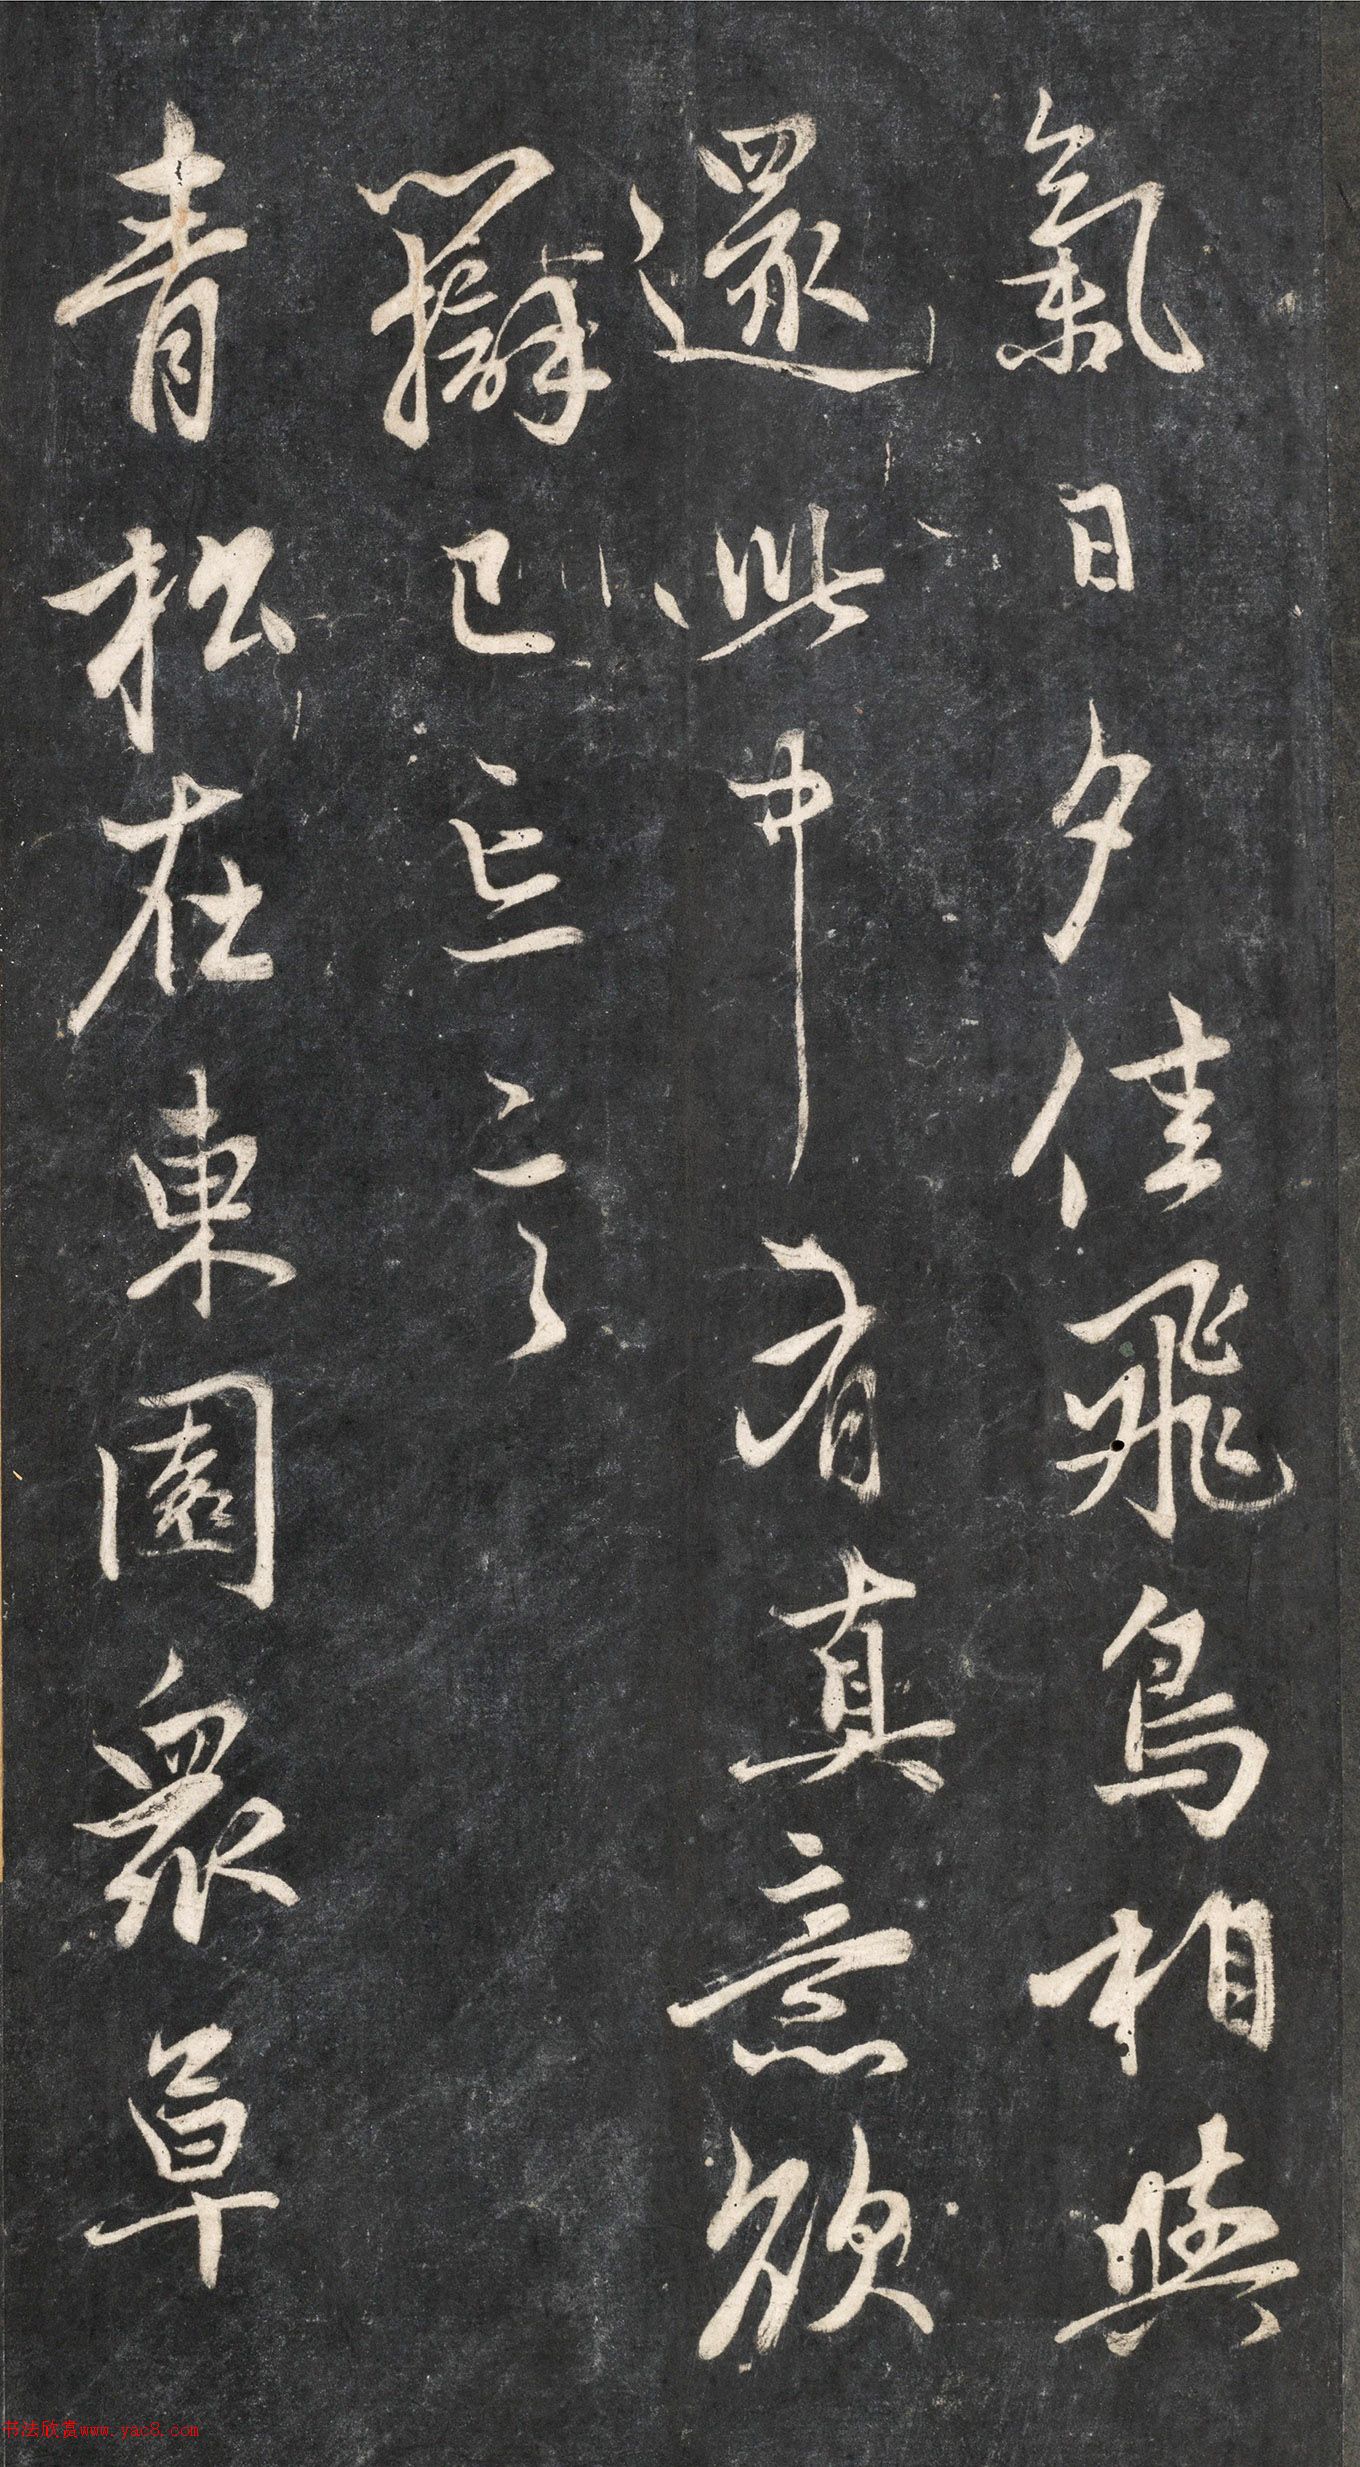 氣日夕佳飛鳥相與
還此中有真意欲
辯已忘言
青松在東園眾草
书法欣赏www.yac8.com